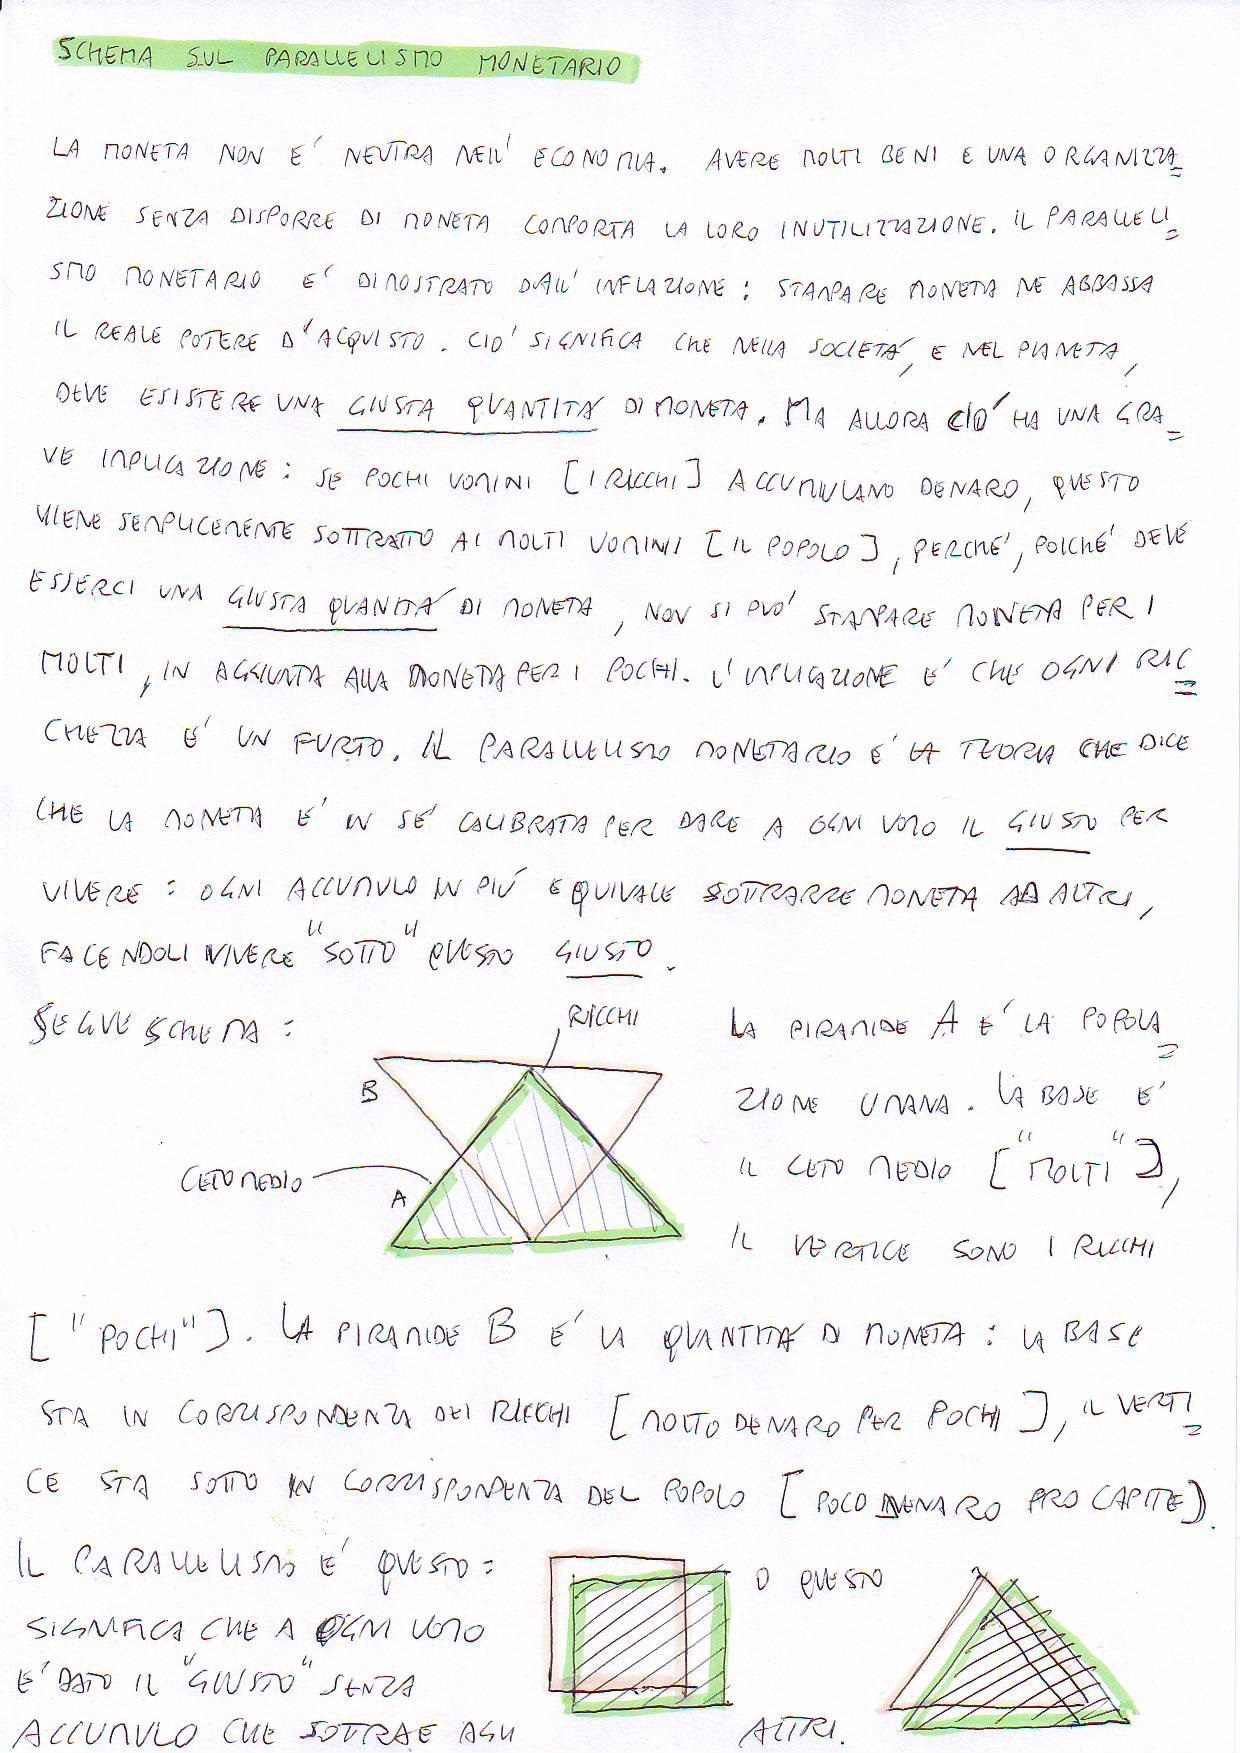 SCHEMA SUL PARALLELISMO MONETARIO
LA MONETA NON E' NEUTRA NELL' ECONOMIA. AVERE MOLTI BENI E UNA ORGANIZZA=
ZIONE SENZA DISPORRE DI MONETA COMPORTA LA LORO INUTILIZZAZIONE. IL PARALLELI=
SMO MONETARIO E' DIMOSTRATO DALL' INFLAZIONE: STAMPARE MONETA NE ABBASSA
IL REALE POTERE D'ACQUISTO. CIO' SIGNIFICA CHE NELLA SOCIETA', E NEL PIANETA,
DEVE ESISTERE UNA GIUSTA QUANTITA' DI MONETA. MA ALLORA CIO' HA UNA GRA=
VE IMPLICAZIONE: SE POCHI UOMINI [I RICCHI] ACCUMULANO DENARO, QUESTO
VIENE SEMPLICEMENTE SOTTRATTO AI MOLTI UOMINI [IL POPOLO], PERCHE', POICHE' DEVE
ESSERCI UNA GIUSTA QUANITA' DI MONETA, NON SI PUO' STAMPARE MONETA PER I
MOLTI, IN AGGIUNTA ALLA MONETA PER I POCHI. L'IMPLICAZIONE E' CHE OGNI RIC=
CHEZZA E' UN FURTO. IL PARALLELISMO MONETARIO E' LA TEORIA CHE DICE
CHE LA MONETA E' IN SE' CALIBRATA PER DARE A OGNI UOMO IL GIUSTO PER
VIVERE: OGNI ACCUMULO IN PIU' EQUIVALE SOTTRARRE MONETA AD ALTRI,
FACENDOLI VIVERE "SOTTO" QUESTO GIUSTO.
SEGUE SCHEMA:
RICCHI
B
CETO MEDIO
A
LA PIRAMIDE A E' LA POPOLA=
ZIONE UMANA. LA BASE E'
IL CETO MEDIO ["MOLTI"],
IL VERTICE SONO I RICCHI
["POCHI"]. LA PIRAMIDE B E' LA QUANTITA' DI MONETA: LA BASE
STA IN CORRISPONDENZA DEI RICCHI [MOLTO DENARO PER POCHI], IL VERTI=
CE STA SOTTO IN CORRISPONDENZA DEL POPOLO [POCO DENARO PRO CAPITE].
IL PARALLELISMO E' QUESTO: O QUESTO
SIGNIFICA CHE A OGNI UOMO
E' DATO IL "GIUSTO" SENZA
ACCUMULO CHE SOTTRAE AGLI ALTRI.